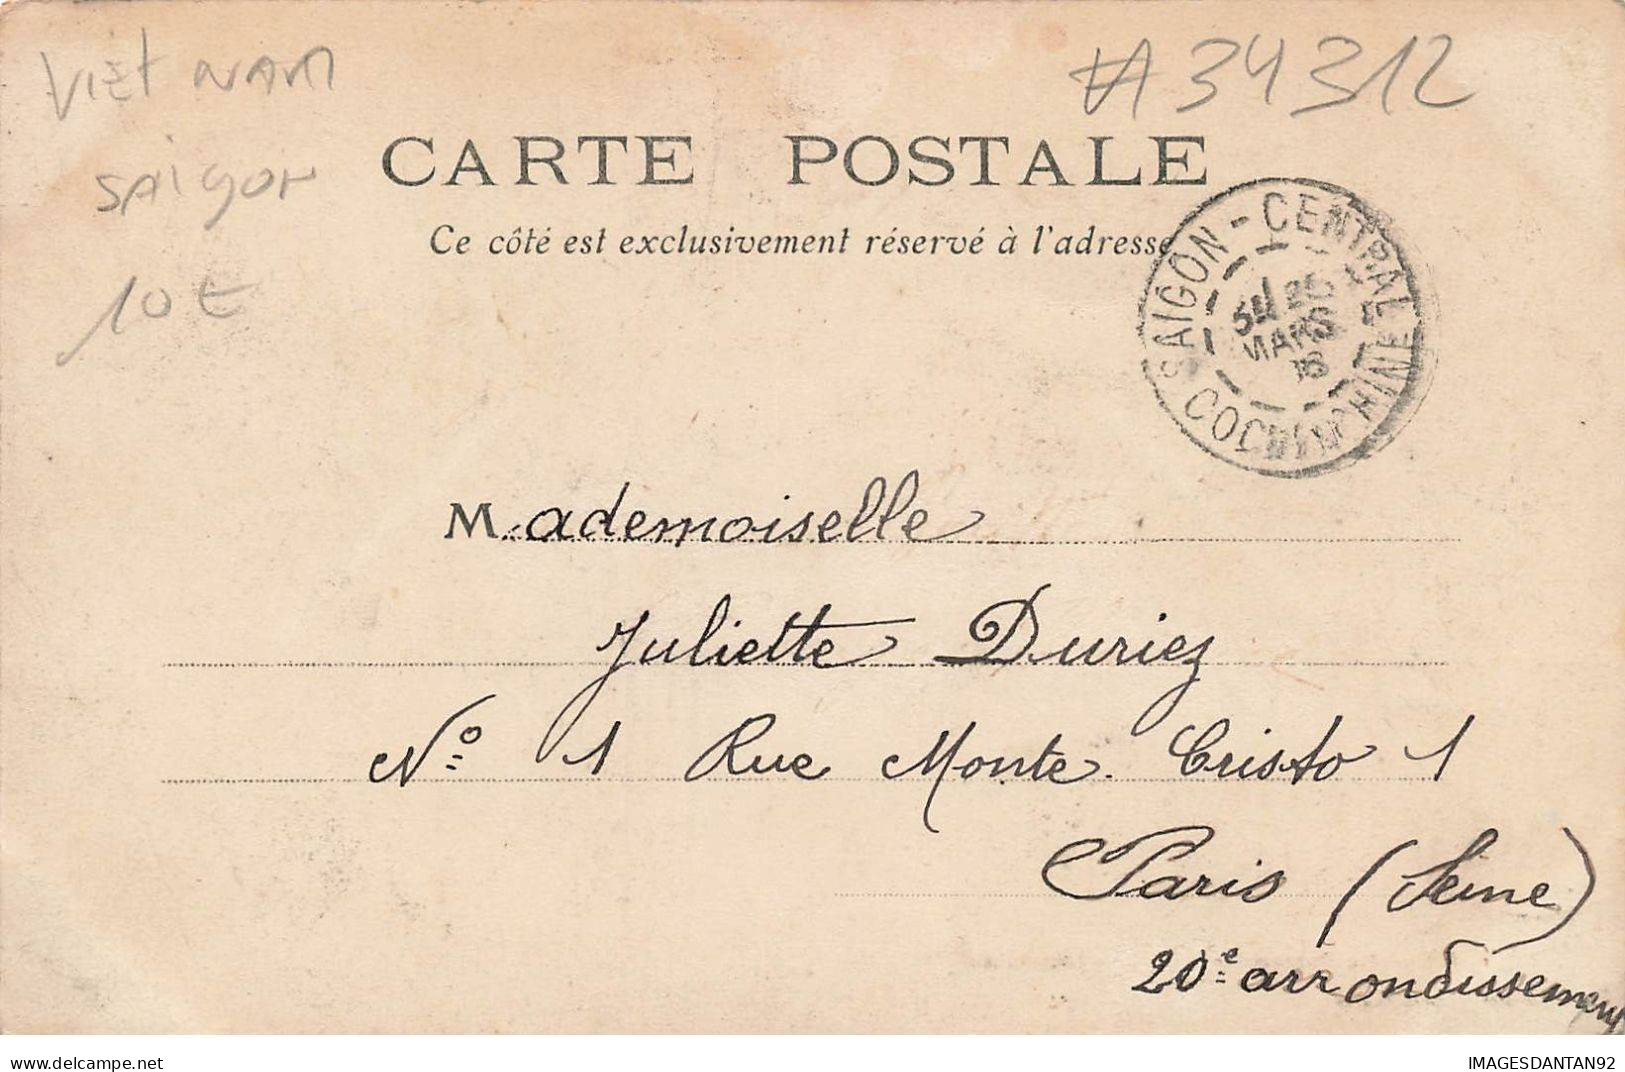 VIET NAM
#A 34312
SAIGON
10 €
CARTE POSTALE
Ce côté est exclusivement réservé à l'adresse
SAIGON - CENTRAL
MARS
COCHINCHINE
Mademoiselle
Juliette Duriez
No 1 Rue Monte. Cristo 1
Paris (Seine)
20e arrondissement
IMAGESDANTAN92
delcampe.net